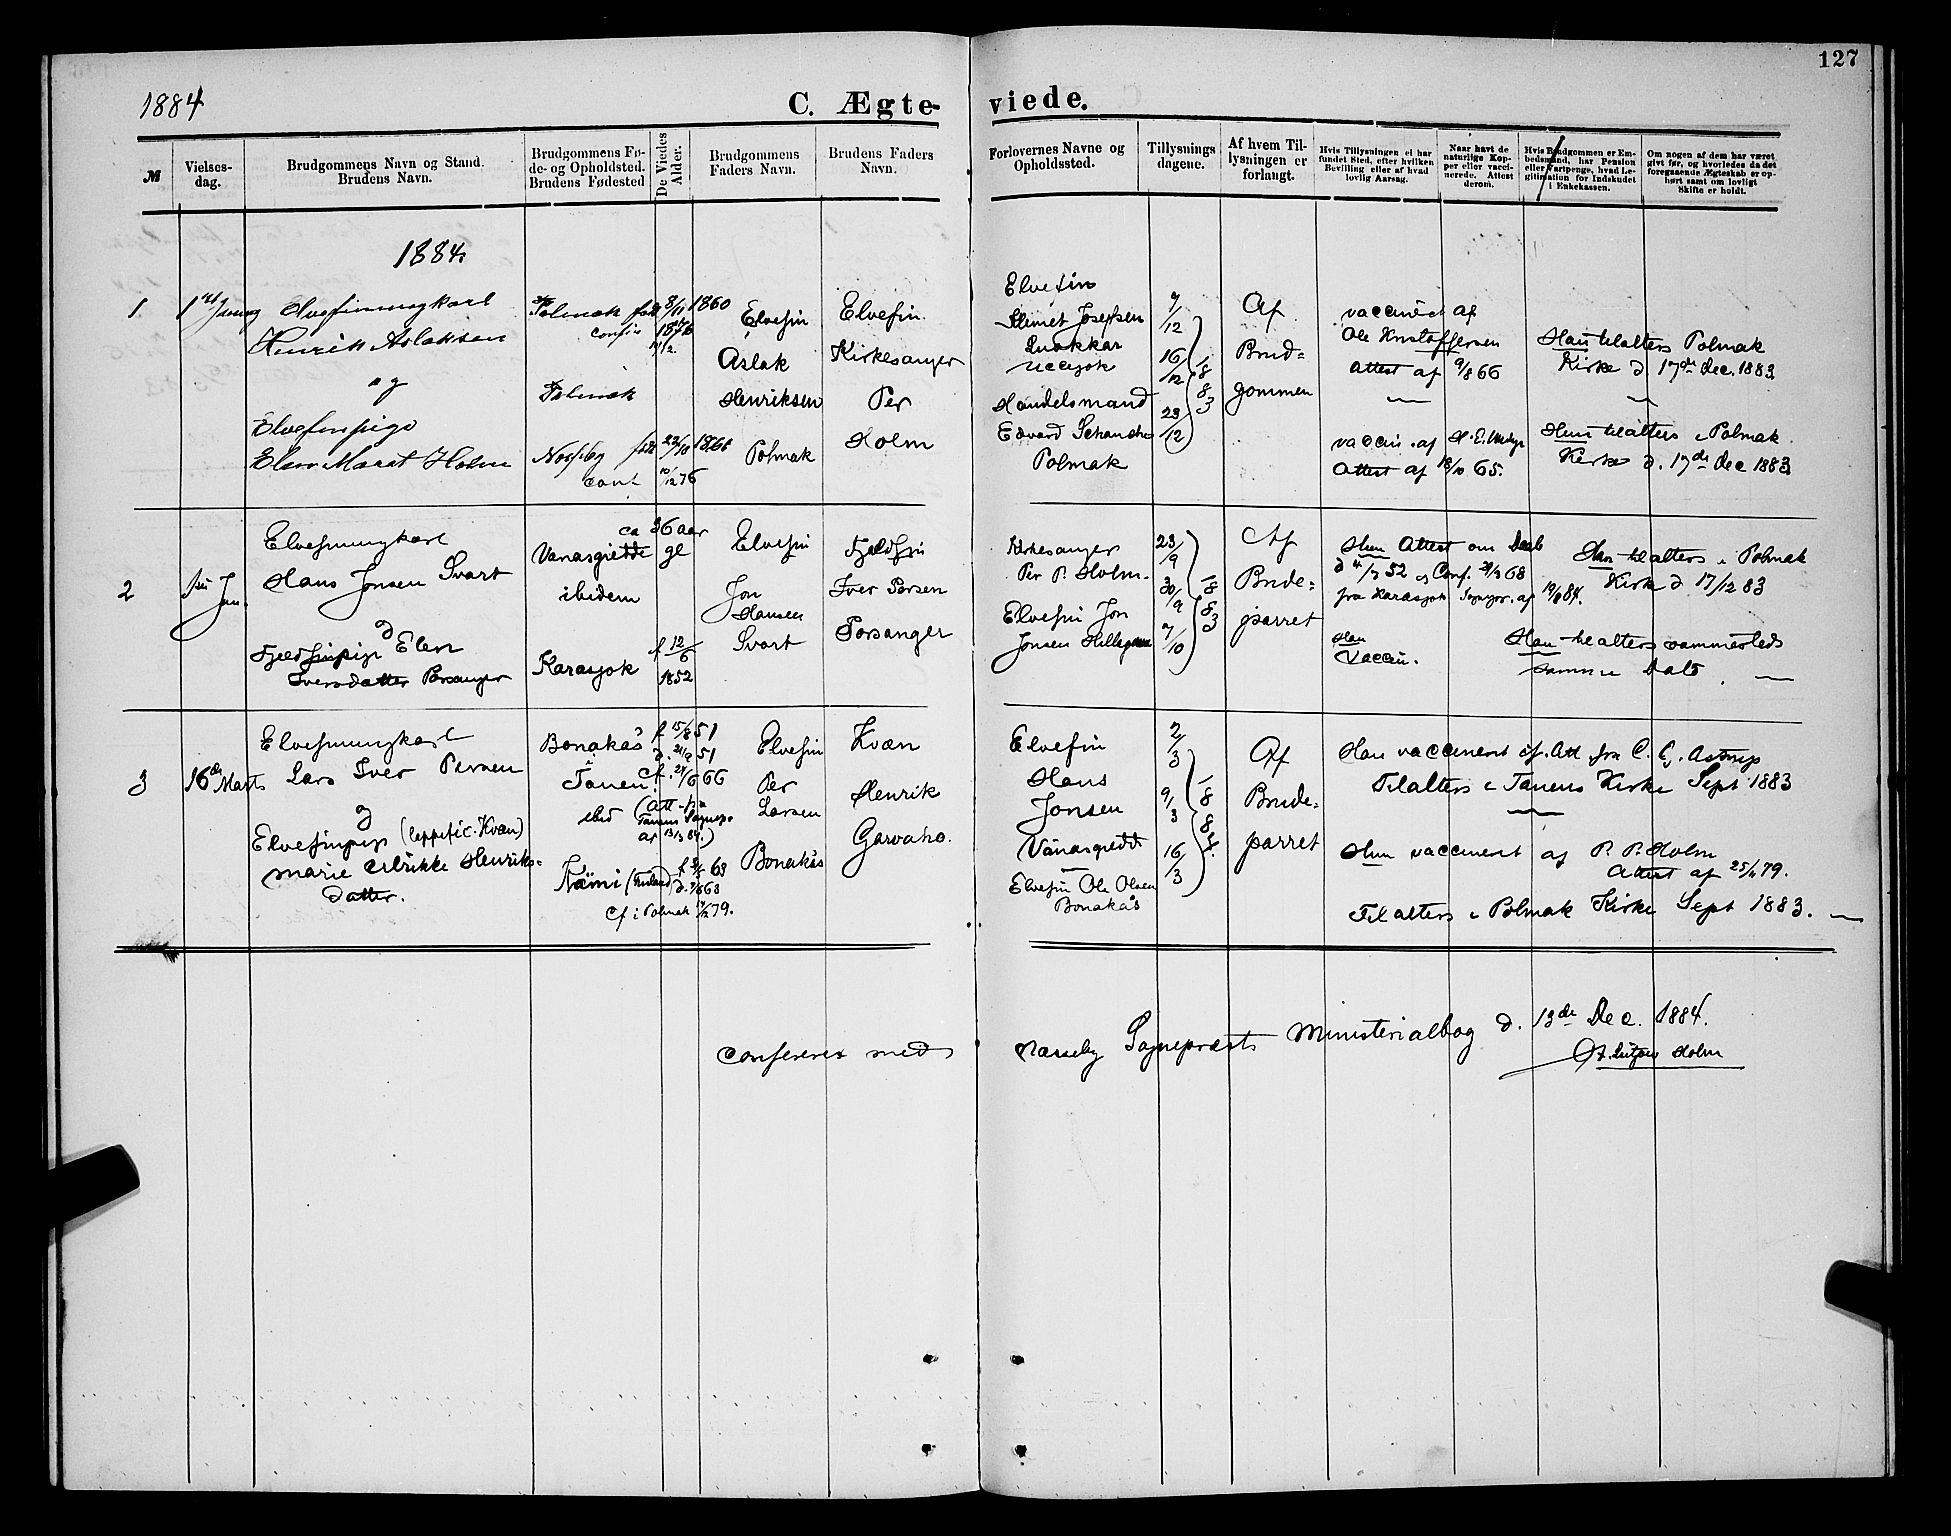 127
1884
C. Ægte- viede.
№
Vielses-
dag.
Brudgommens Navn og Stand.
Brudens Navn.
Brudgommens Fø-
de- og Opholdsted.
Brudens Fødested
De Viedes
Alder.
Brudgommens
Faders Navn.
Brudens Faders
Navn.
Forlovernes Navne og
Opholdssted.
Tillysnings
dagene.
Af hvem Til-
lysningen er
forlangt.
Hvis Tillysningen ei har
fundet Sted, efter hvilken
Bevilling eller af hvad
lovlig Aarsag.
Naar havt de
naturlige Kop-
per eller vacci-
nerede. Attest
derom.
Hvis Brudgommen er Em-
bedsmand, har Pension
eller Vartpenge, hvad Le-
gitimation for Indskudet
i Enkekassen.
Om nogen af dem har været
givt før, og hvorledes da det
foregaaende Ægteskab er op-
hørt samt om lovligt
Skifte er holdt.
1884
1
Elvefinungkarl
Henrik Aslaksen
og
Elvefinpige
Elen Marat Holm
Polmak
8/11 1860
confir 1876
Polmak
22/10
conf 10/12 76
Elvefin
Aslak
Henriksen
Polmak
Elvefin
Kirkesanger
Per
Holm
Elvefin
Klimet Josefsen
Handelsmand
Edvard Schanche
Polmak
9/12
16/12
23/12
1883
Af
Brud=
gommen
vaccineret af
Ole Kristoffersen
attest af 9/8 66
vaccin. af
Attest af 18/10 65.
Han tilalters Polmak
Kirke d 17de Dec. 1883
Hun tilalters i Polmak
Kirke d. 17de Dec 1883
2
Jan.
Elvefinungkarl
Hans Jonsen Svart
og
Fjeldfinpige Elen
Iversdatter Porsanger
ca 36 aar
gl
Vanasgiedde
ibidem
Karasjok
f 12/6
1852
Elvefin
Jon
Hansen
Svart
Fjeldfin
Iver Persen
Porsanger
Kirkesanger
Per P. Holm.
Elvefin Jon
Jonsen
23/9
30/9
7/10
1883
Af
Brude=
parret
Hun Attest om Daab
fra Karasjok
Han
Vaccin.
Hun tilalters i Polmak
Kirke d 17/12 83
Han tilalters sammesteds
samme Dato.
3
16de Marts
Elvefinungkarl
Lars Iver Persen
og
Elvefinpige
Marie Ulrikke Henriks=
datter.
Bonakas
i
Tanen.
f 15/8 51
d. 21/9 51
cf. 24/6 66
ibid
f 3/5 63
d. 7/8 63
cf i Polmak 79.
Elvefin
Per
Larsen
Bonakås
Kvæn
Henrik
Garvaho.
Elvefin
Hans
Jonsen
Vanasgiedde
Elvefin Ole Olsen
Bonakås
2/3
9/3
16/3
1884.
Af
Brude=
parret
Han vaccineret cf. Att fra C. G. Astrup
Tilalters i Tanens Kirke Sept 1883
Hun vaccineret af P. P. Holm
Attest af 25/1 79.
Tilalters i Polmak Kirke Sept 1883.
Confereret med Næsseby Sognepræsts Ministerialbog d. 13de Dec. 1884.
Holm